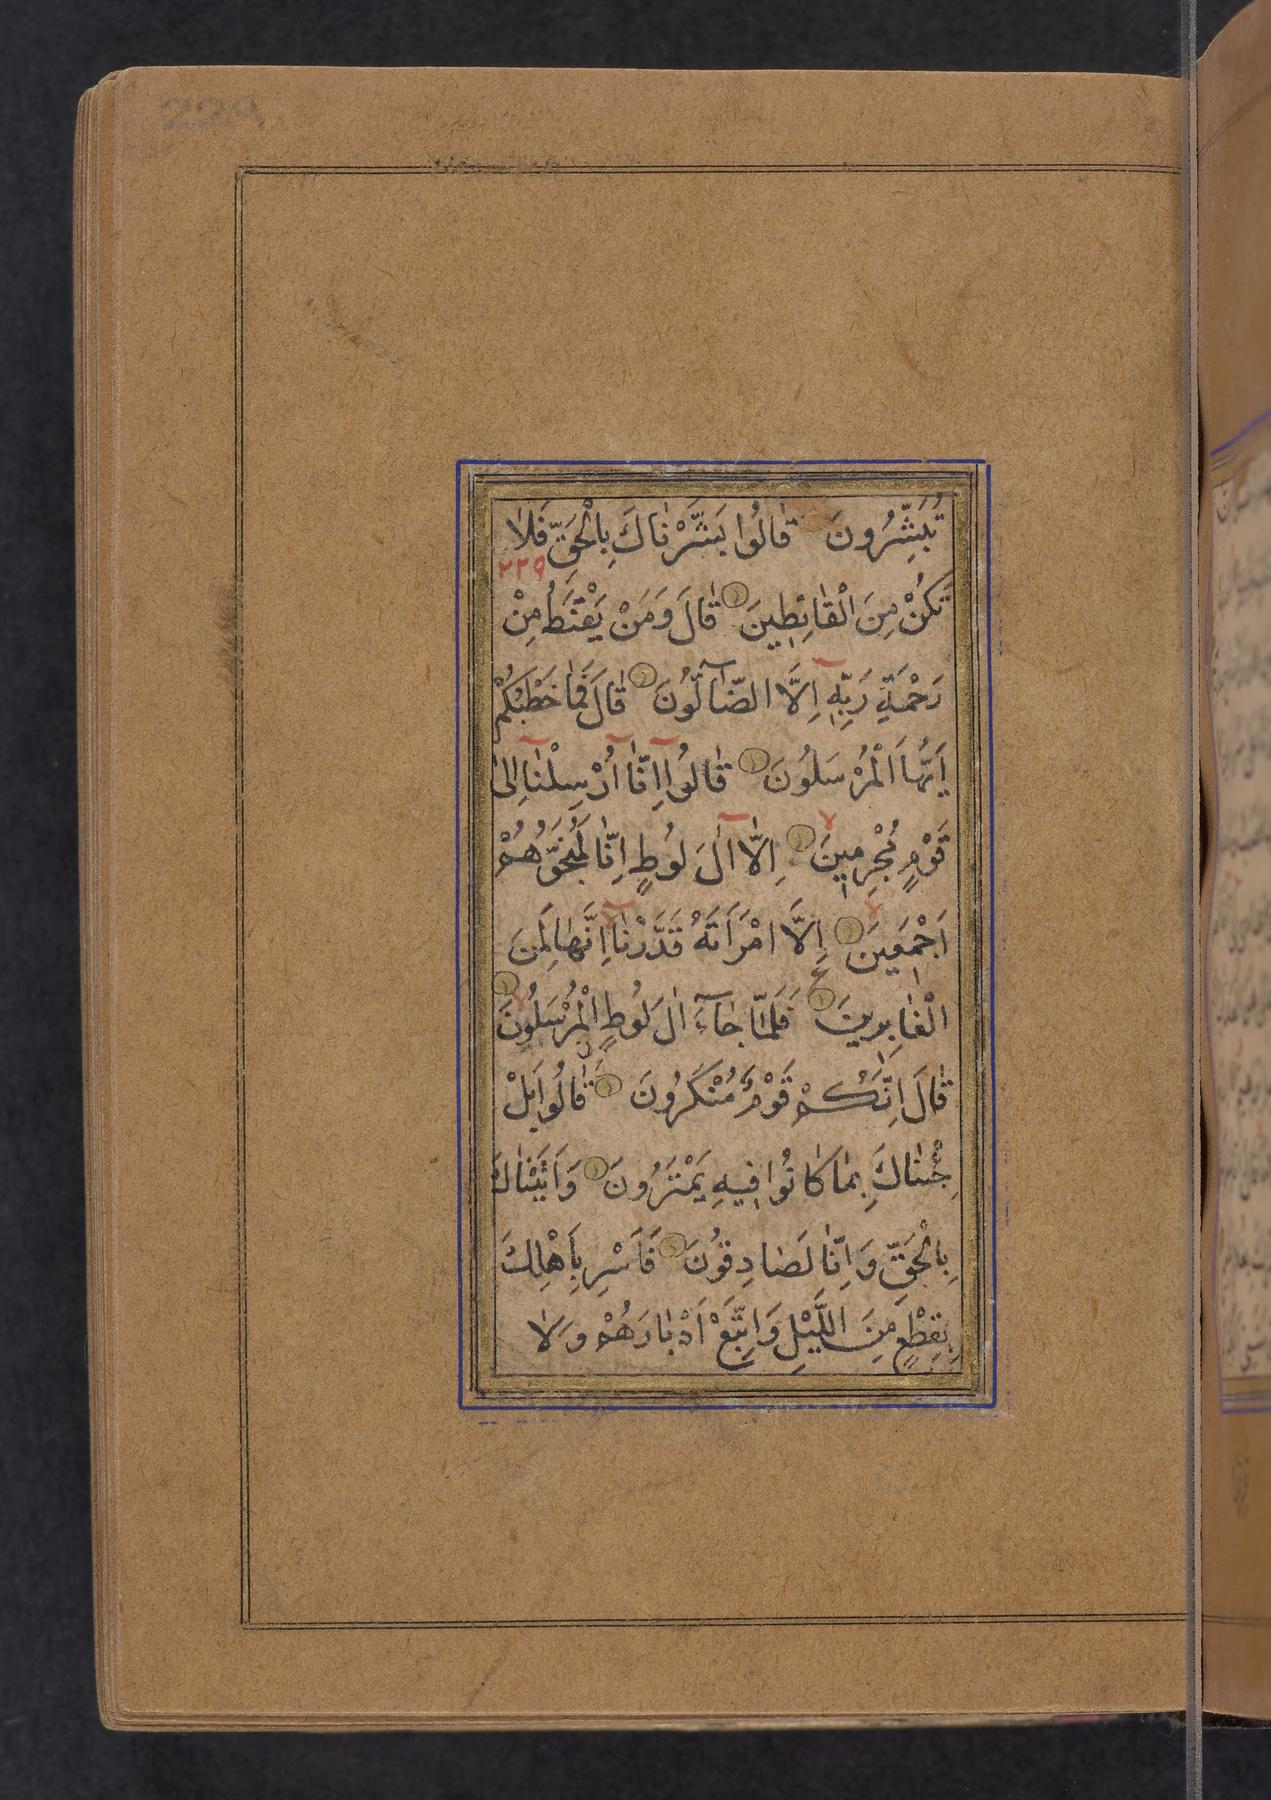 229
تُبَشِّرُونَ قٰالُوا بَشَّرْنٰاكَ بِالْحَقِّ فَلاٰ
٢٢٩
تَكُنْ مِنَ الْقٰانِطِينَ قٰالَ وَمَنْ يَقْنَطُ مِنْ
رَحْمَةِ رَبِّهِ اِلَّا الضّٰآلّوُنَ قٰالَ فَمٰا خَطْبُكُمْ
اَيُّهَا الْمُرْسَلُونَ قٰالُوآ اِنّٰآ اُرْسِلْنٰآ اِلىٰ
قَوْمٍ مُجْرِمِينَ اِلّٰآ اٰلَ لوُطٍ اِنّٰا لَمُنَجُّوهُمْ
اَجْمَعِينَ اِلَّا امْرَاَتَهُ قَدَّرْنٰآ اِنَّهٰا لَمِنَ
الْغٰابِرِينَ فَلَمّٰا جٰآءَ اٰلَ لوُطٍ الْمُرْسَلُونَ
قٰالَ اِنَّكُمْ قَوْمٌ مُنْكَرُونَ قٰالُوا بَلْ
جِئْنٰاكَ بِمٰا كٰانُوا فِيهِ يَمْتَرُونَ وَاَتَيْنٰاكَ
بِالْحَقِّ وَاِنّٰا لَصٰادِقوُنَ فَاَسْرِ بِاَهْلِكَ
بِقِطْعٍ مِنَ اللَّيْلِ وَاتَّبِعْ اَدْبٰارَهُمْ وَلاٰ